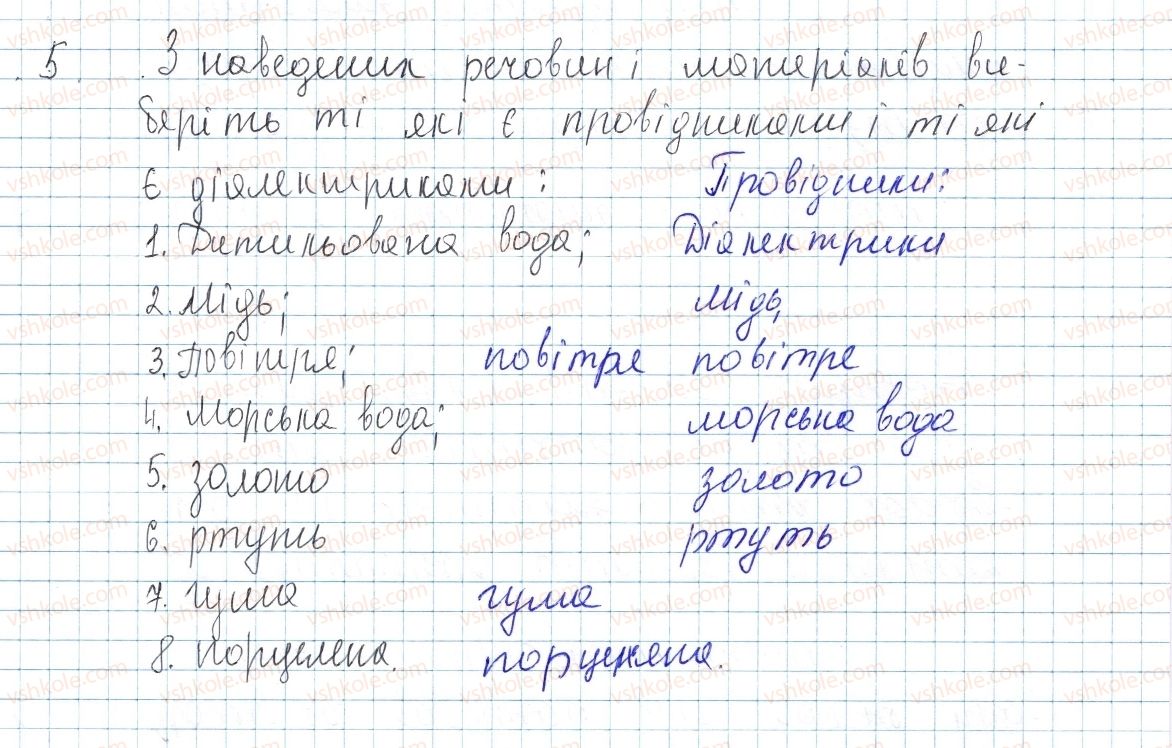 5. З наведених речовин і матеріалів ви-
беріть ті які є провідниками і ті які
є діелектриками: Провідники:
1. Дитильована вода; Діелектрики
2. Мідь; мідь,
3. Повітря; повітря повітре
4. Морська вода; морська вода
5. золото золото
6. ртуть ртуть
7. гума гума
8. порцелена. порцеляна.